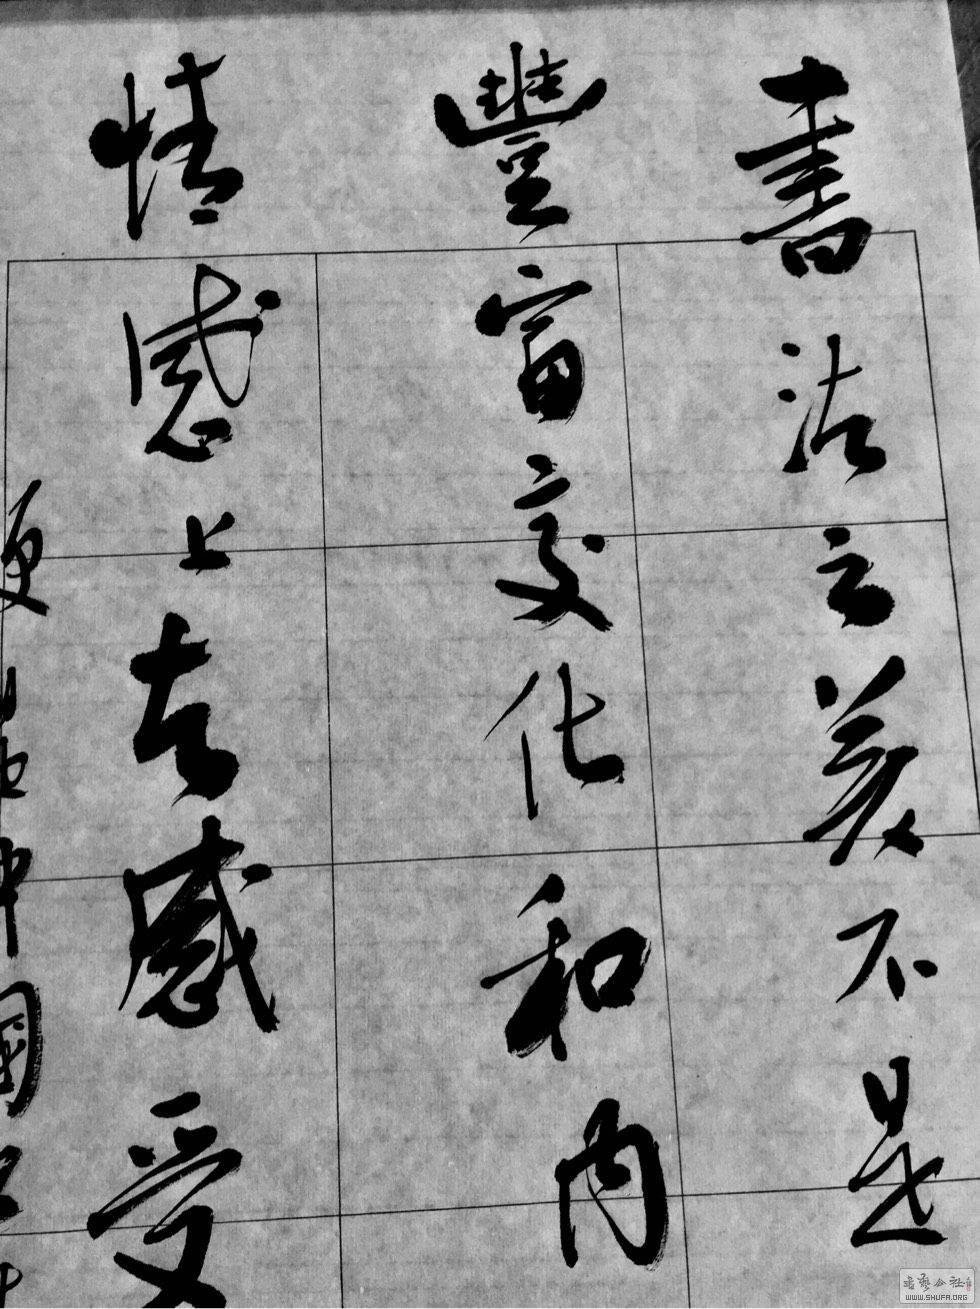 書法之美不是
豐富文化和内
情感上去感受
更是中國
書藝公社
WWW.SHUFA.ORG